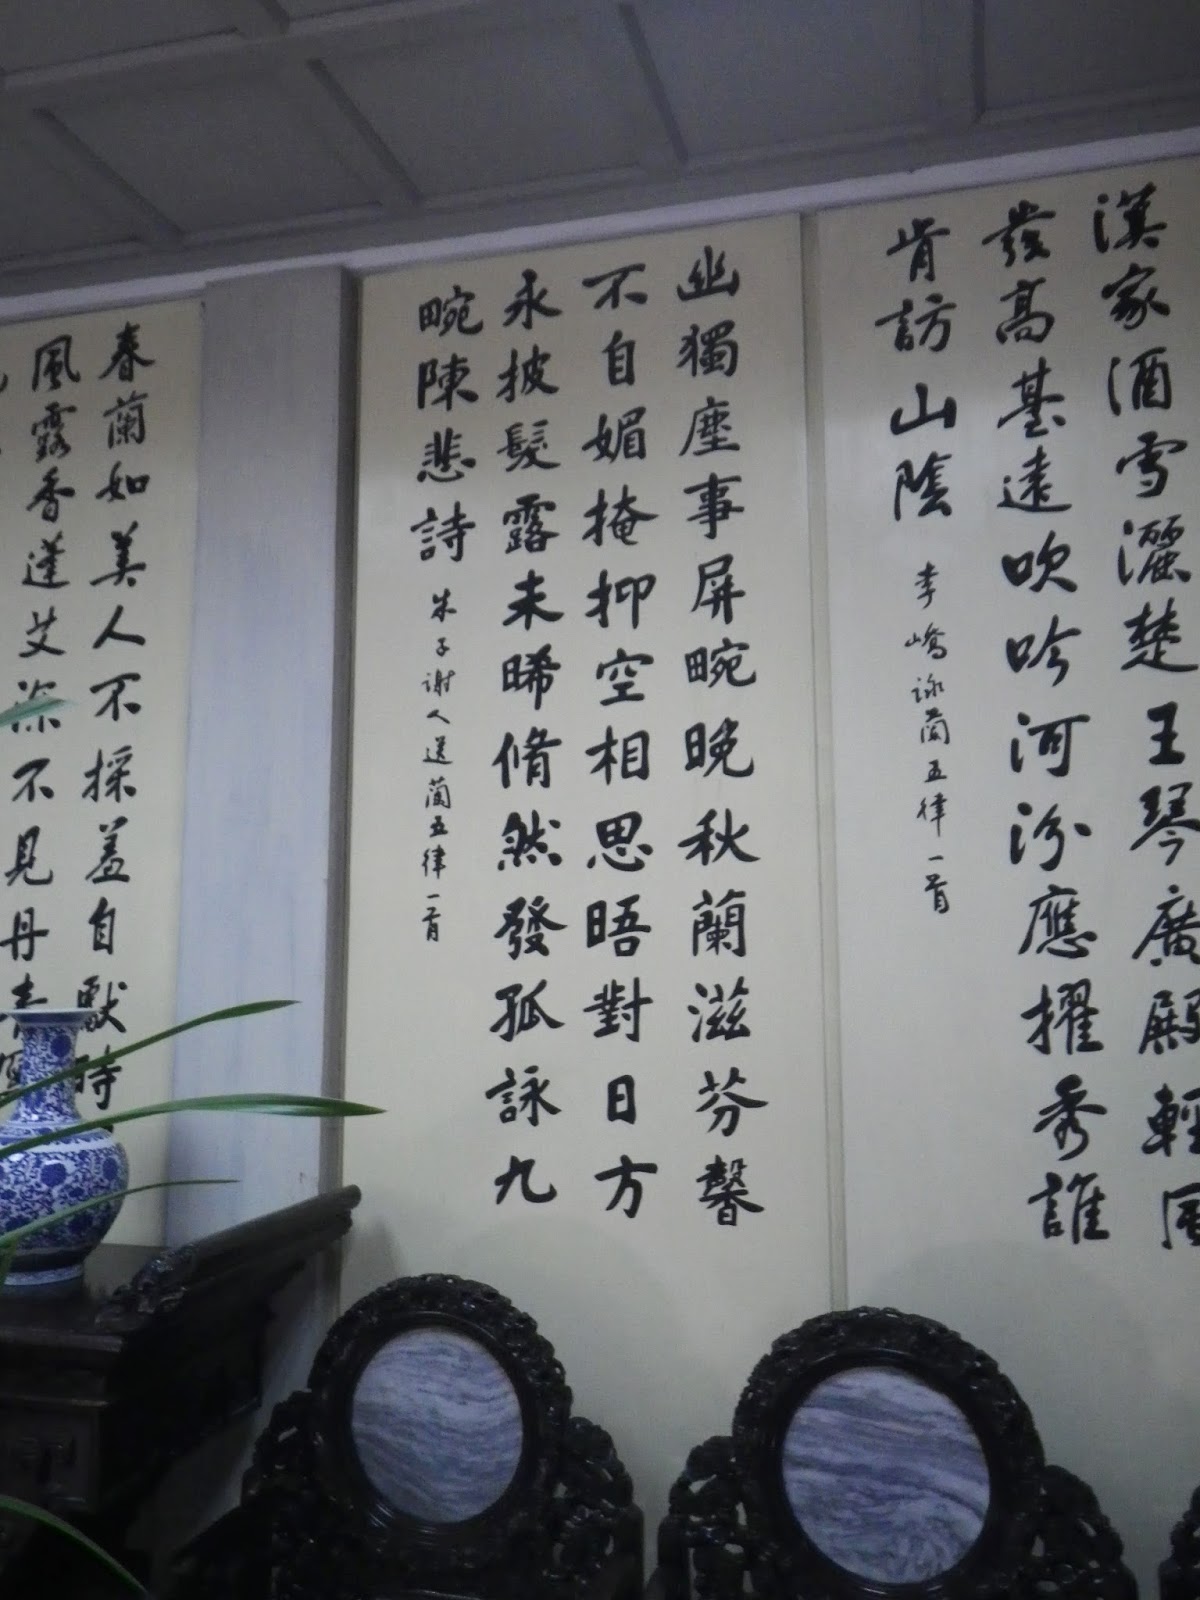 漢家酒雪灑楚王琴廣殿輕風
發高臺遠吹吟河汾應擢秀誰
肯訪山陰
李嶠詠蘭五律一首
幽獨塵事屏畹晚秋蘭滋芬馨
不自媚掩抑空相思晤對日方
永披髮露未晞脩然發孤詠九
畹陳悲詩
朱子謝人送蘭五律一首
春蘭如美人不採羞自獻時
風露香蓬艾深不見丹青